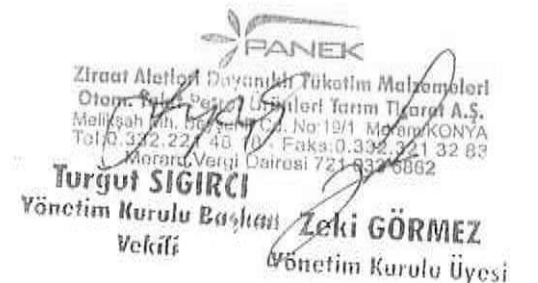 PANEK
Ziraat Aletleri Dayanıklı Tüketim Malzemeleri
Otom. Petrol Ürünleri Tarım Ticaret A.Ş.
Melikşah Mh. Beyşehir Cd. No:19/1 Meram/KONYA
Tel:0.332. 48 Faks:0.332.321 32 83
Meram Vergi Dairesi 721 6862
Turgut SIĞIRCI
Yönetim Kurulu Başkan
Vekili
Zeki GÖRMEZ
Yönetim Kurulu Üyesi